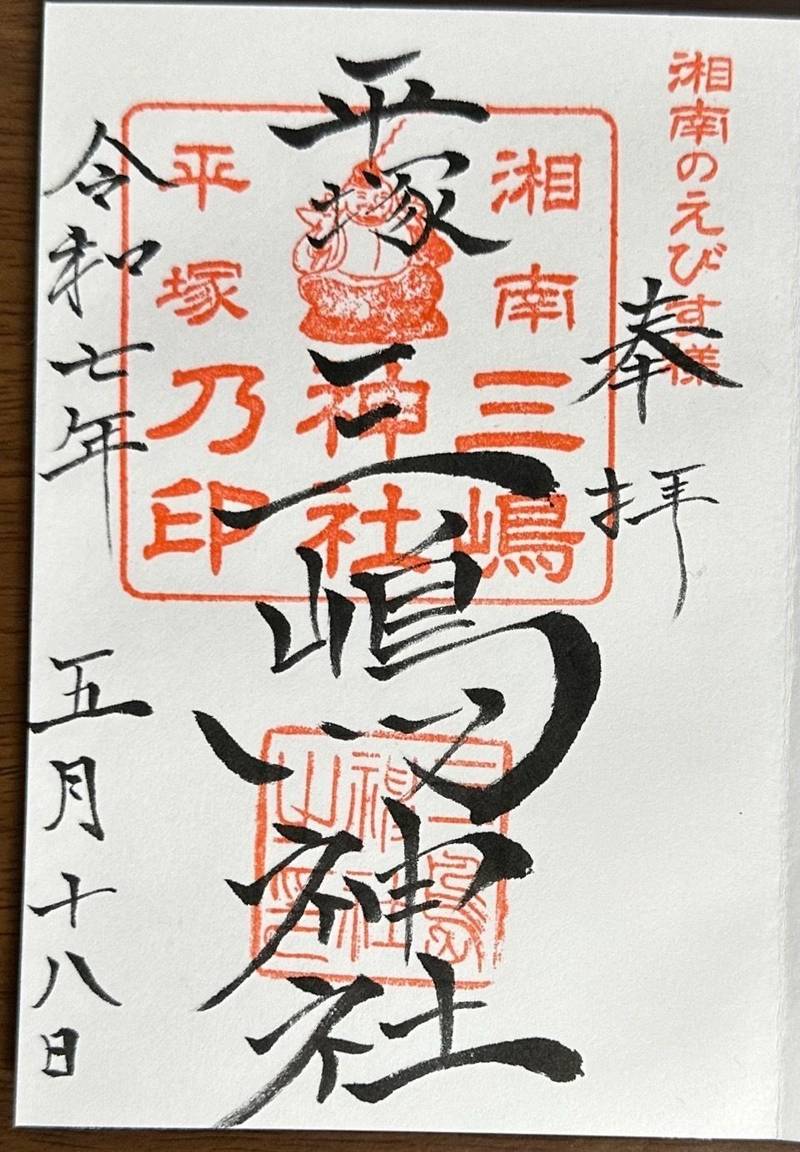 湘南のえびす様
奉拝
平塚三嶋神社
湘南三嶋
神社
平塚乃印
三嶋
神社
之印
令和七年 五月十八日